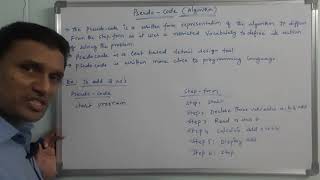 Pseudo-Code (Algorithm)
* The Pseudo-code is a written form representation of the algorithm. It differs
From the step form as it uses a restricted vocabulary to define its action
of solving the problem.
* Pseudo-code is a text based detail design tool.
* Pseudo code is written more close to programming language.
Ex: To add 2 no's
Pseudo-Code
start program
Step-form
Step 1: Start
Step 2: Declare three variables a, b, add
Step 3: Read a and b
Step 4: Calculate add =
Step 5: Display add
Step 6: Stop